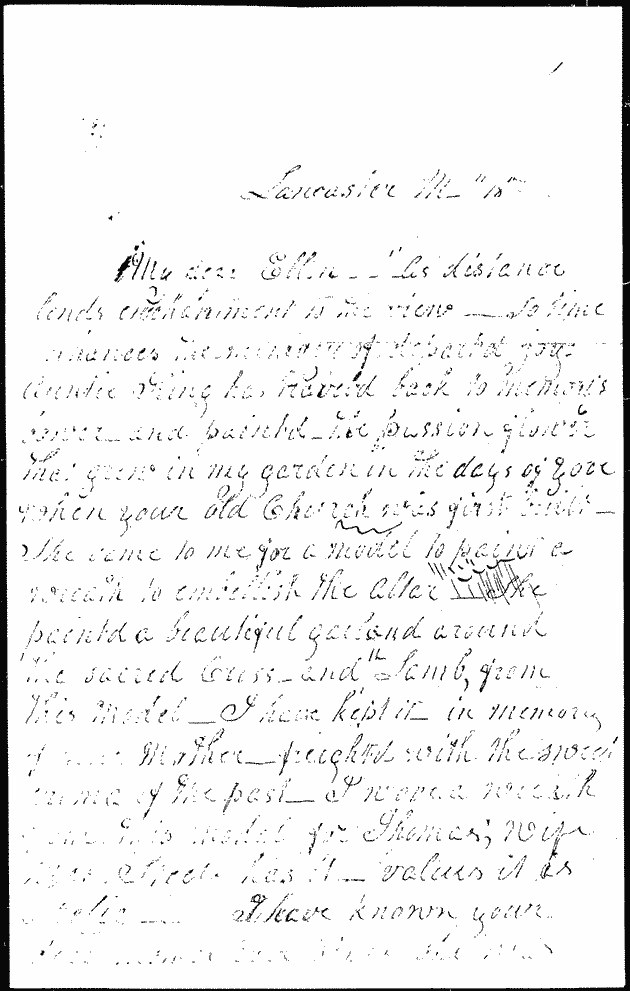 Lancaster M— "18"
My dear Ellen — "As distance
lends enchantment to the view — so time
enhances the memory of departed joys
Auntie King has traveld back to memorys
bower — and paintd — the passion flower
that grew in my garden in the days of yore
when your old Church was first built —
She came to me for a model to paint a
wreath to embellish the altar — She
paintd a beautiful garland around
the sacred Cross — and "Lamb, from
this model — I have kept it in memory
of your Mother — freightd with the sweet
aroma of the past — I wove a wreath
from this model for Thomas', Wife
has it — values it as
a relic — I have known your
dear ever since she was